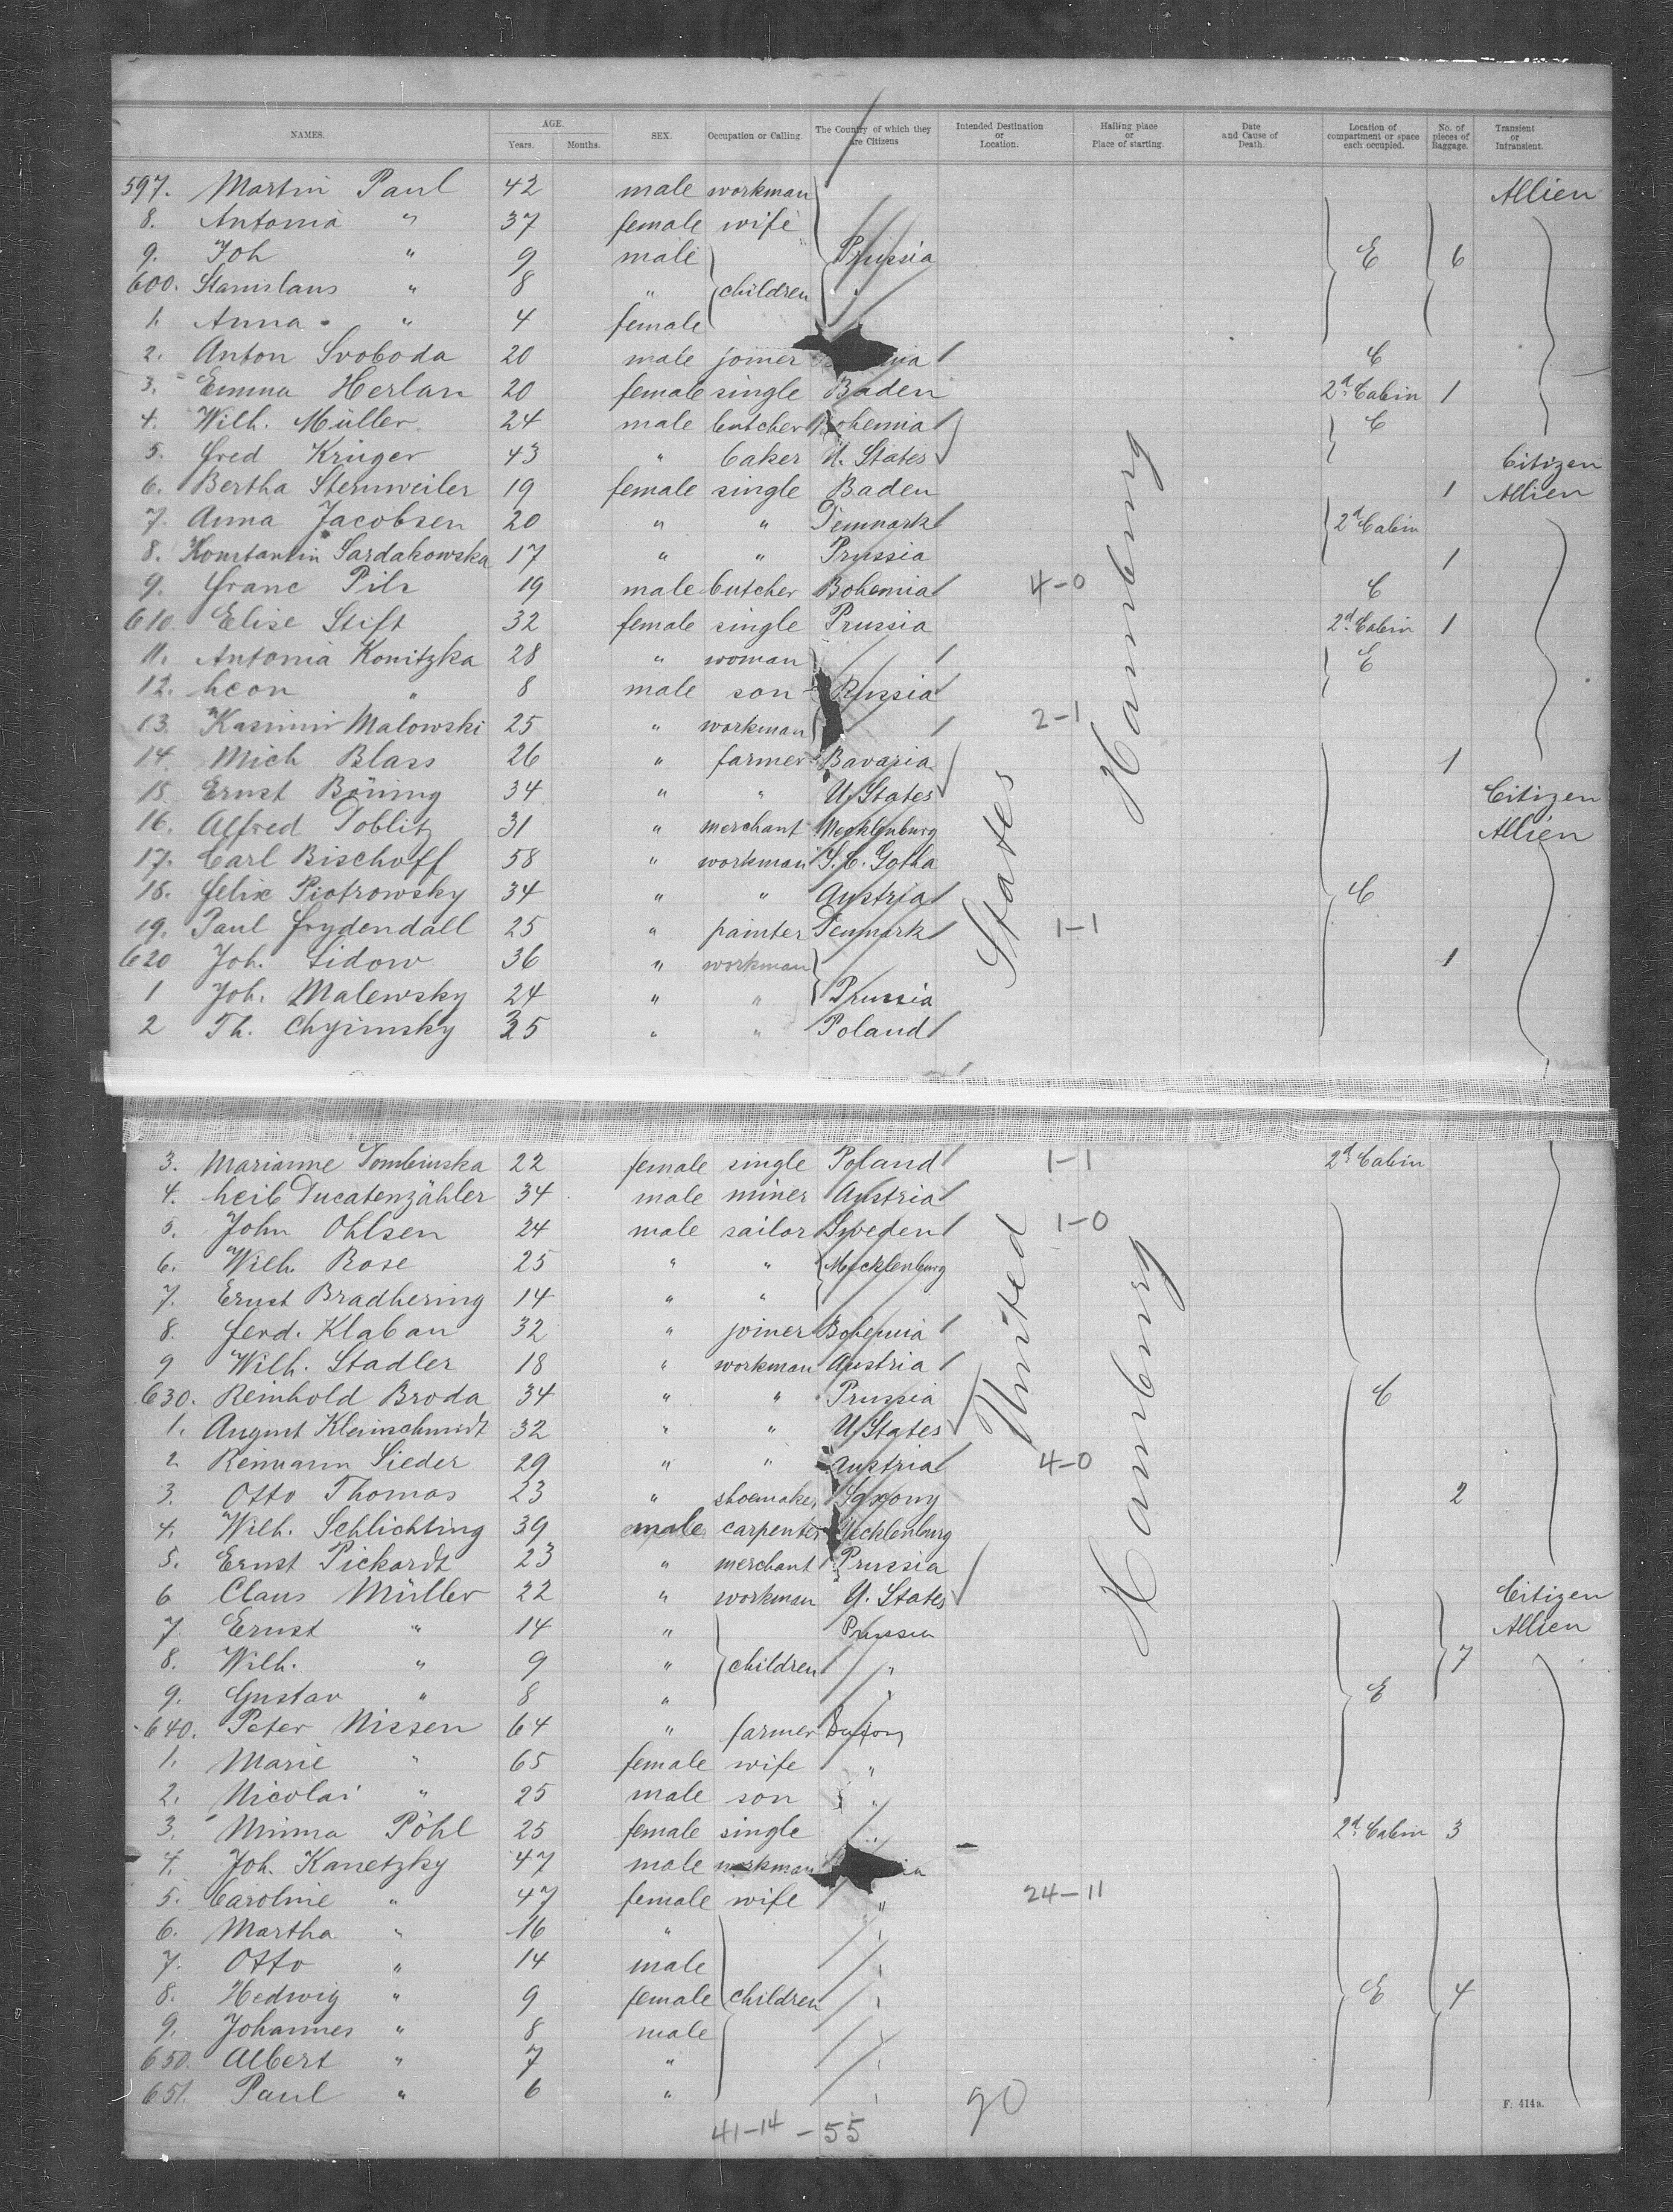 NAMES. AGE. Years. Months. SEX. Occupation or Calling. The Country of which they are Citizens Intended Destination or Location. Hailing place or Place of starting. Date and Cause of Death. Location of compartment or space each occupied. No. of pieces of Baggage. Transient or Intransient.
597. Martin Paul 42 male workman Allien
8. Antonia " 37 female wife
9. Joh " 9 male Prussia E 6
600. Stanislaus " 8 " children "
1. Anna " 4 female
2. Anton Svoboda 20 male joiner C
3. Emma Herlan 20 female single Baden 2d Cabin 1
4. Wilh. Müller 24 male butcher Bohemia C
5. Fred Krüger 43 " baker U. States Citizen
6. Bertha Steinweiler 19 female single Baden 1 Allien
7. Anna Jacobsen 20 " " Denmark 2d Cabin
8. Konstantin Sardakowska 17 " " Prussia 1
9. Franc Pilz 19 male butcher Bohemia 4-0 C
610. Elise Stift 32 female single Prussia 2d Cabin 1
11. Antonia Konitzka 28 " woman E
12. Leon " 8 male son Russia
13. Kasimir Malowski 25 " workman 2-1
14. Mich Blass 26 " farmer Bavaria 1
15. Ernst Böning 34 " " U. States Citizen
16. Alfred Doblitz 31 " merchant Mecklenburg Allien
17. Carl Bischoff 58 " workman S. C. Gotha
18. Felix Piotrowsky 34 " " Austria C
19. Paul Frydendall 25 " painter Denmark 1-1
620 Joh. Sidow 36 " workman 1
1 Joh. Malewsky 24 " " Prussia
2 Th. Chyimsky 25 " " Poland
States
Hamburg
3. Marianne Dombinska 22 female single Poland 1-1 2d Cabin
4. Leib Ducatenzähler 34 male miner Austria
5. John Ohlsen 24 male sailor Sweden 1-0
6. Wilh. Rose 25 " " Mecklenburg
7. Ernst Bradhering 14 " "
8. Ferd. Klaban 32 " joiner Bohemia
9 Wilh. Stadler 18 " workman Austria
630. Reinhold Broda 34 " " Prussia C
1. August Kleinschmidt 32 " " U. States
2 Reimann Sieder 29 " " Austria 4-0
3. Otto Thomas 23 " shoemaker Saxony 2
4. Wilh. Schlichting 39 male carpenter Mecklenburg
5. Ernst Pickardt 23 " merchant Prussia
6 Claus Müller 22 " workman U. States Citizen
7 Ernst " 14 " Prussia Allien
8. Wilh. " 9 " children " 7
9. Gustav " 8 " " E
640. Peter Nissen 64 " farmer
1. Marie " 65 female wife "
2. Nicolai " 25 male son "
3. Minna Pöhl 25 female single " 2d Cabin 3
4. Joh. Kanetzky 47 male workman
5. Caroline " 47 female wife " 24-11
6. Martha " 16 "
7. Otto " 14 male
8. Hedwig " 9 female children E 4
9. Johannes " 8 male
650. Albert " 7 "
651. Paul " 6 "
United
Hamburg
90
41-14-55
F. 414a.